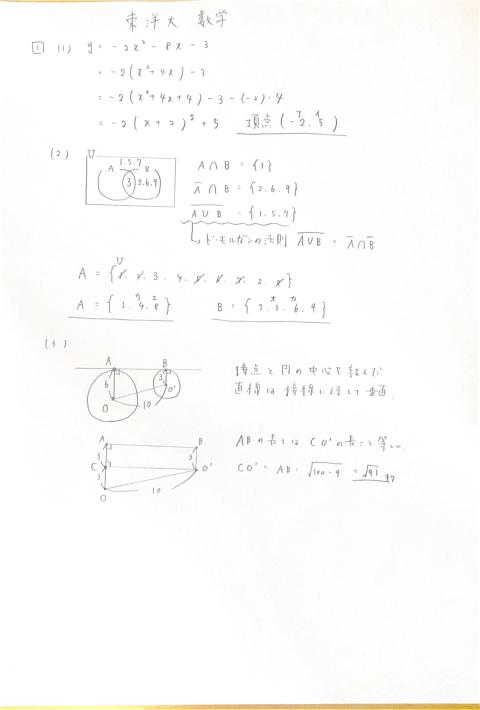 東洋大 数学
1 (1) y = -2x² - 8x - 3
= -2(x² + 4x) - 3
= -2(x² + 4x + 4) - 3 - (-2)・4
= -2(x + 2)² + 5 頂点(-2, 5)
ア イ
(2) U
1.5.7
A B
3 2.6.9
A ∩ B = {3}
A̅ ∩ B = {2.6.9}
A̅ ∪ B̅ = {1.5.7}
ド・モルガンの法則 A̅∪̅B̅ = A̅ ∩ B̅
U
A = {1. 2. 3. 4. 5. 6. 7. 8. 9}
A = {3. 4. 8} B = {2. 3. 6. 9}
(3)
A B
6 3
O 10 O'
接点と円の中心を結んだ
直線は接線に対して垂直.
A B
3 3
C O'
3
O 10
ABの長さはCO'の長さと等しい.
CO' = AB = √100-9 = √91